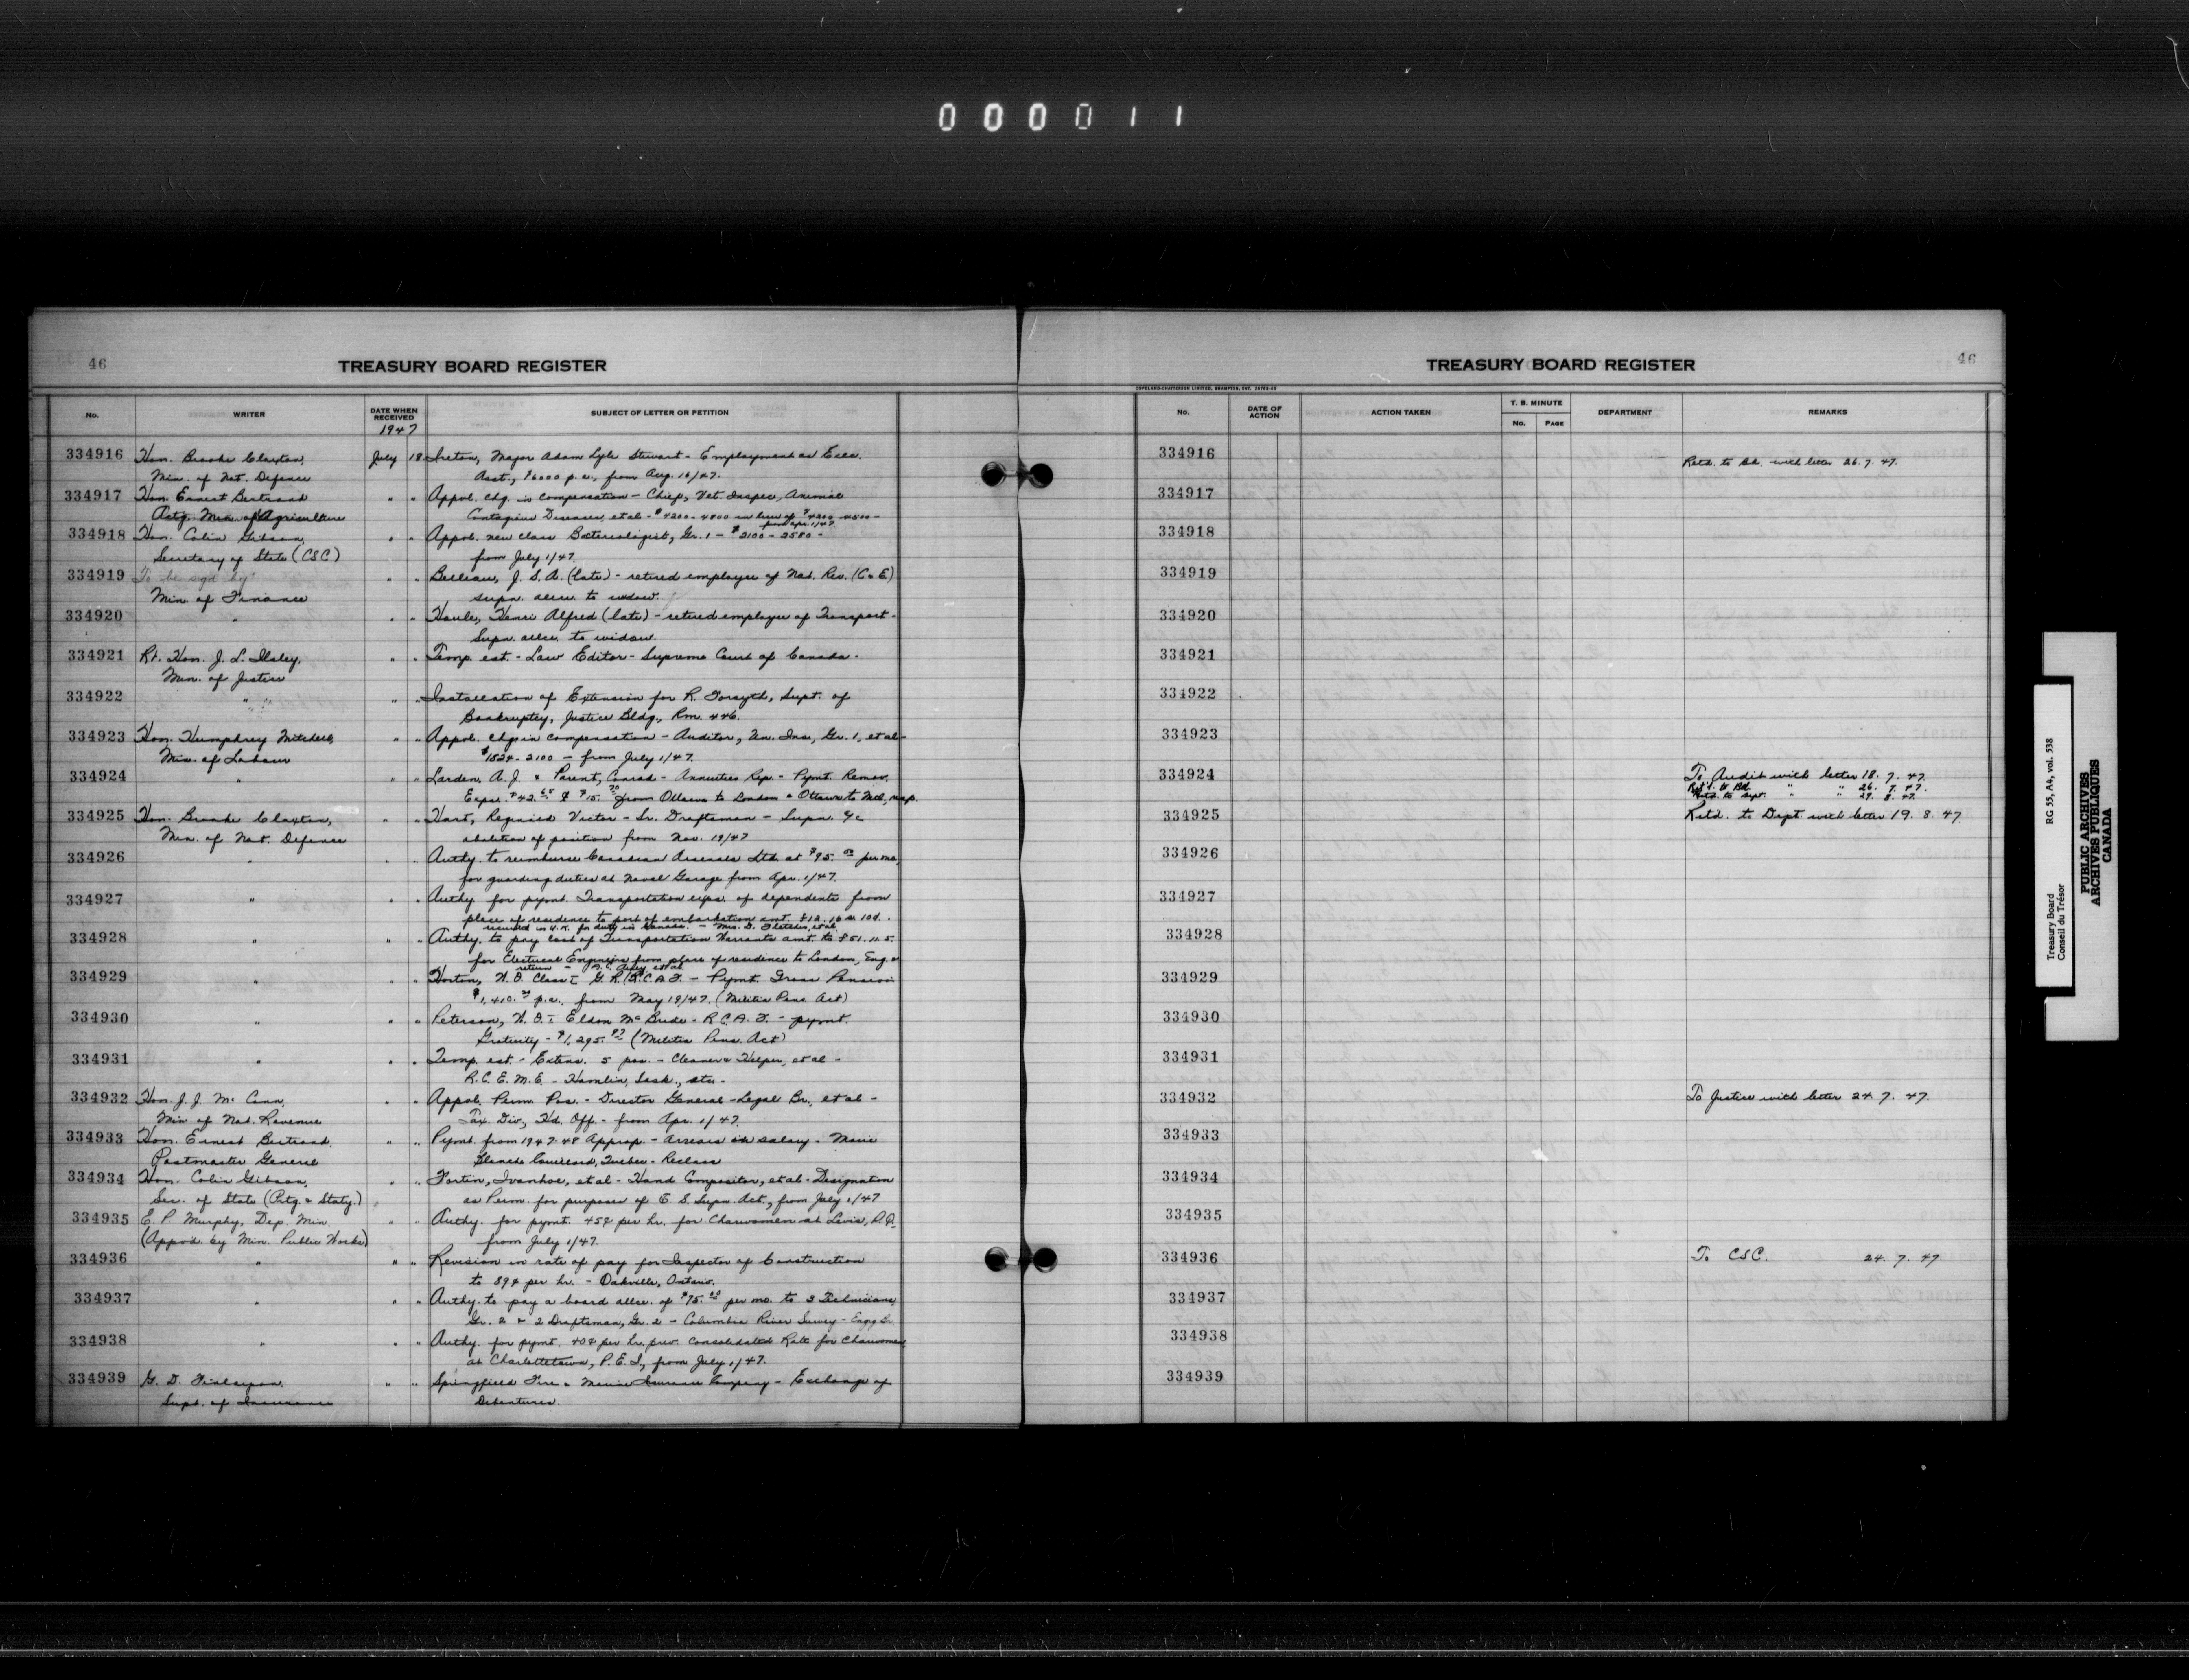 000011
46
TREASURY BOARD REGISTER
No.
WRITER
DATE WHEN RECEIVED
1947
SUBJECT OF LETTER OR PETITION
334916 Hon. Brooke Claxton, July 18 Ireton, Major Adam Lyle Stewart - Employment as Exec.
Min. of Nat. Defence Asst., $6000 p.a., from Aug. 16/47.
334917 Hon. Ernest Bertrand " " Appvl. chg. in compensation - Chief, Vet. Inspec, Animal
Actg. Min. of Agriculture Contagious Diseases, et al - $4200 - 4800 in lieu of $4200 - 4500 -
from Apr. 1/47
334918 Hon. Colin Gibson, " " Appvl. new class Bacteriologist, Gr. 1 - $2100 - 2580 -
Secretary of State (CSC) from July 1/47.
334919 To be sgd by " " Belleau, J. S. A. (late) - retired employee of Nat. Rev. (C & E)
Min. of Finance supn. allce. to widow.
334920 " " " Houle, Henri Alfred (late) - retired employee of Transport -
Supn. allce. to widow.
334921 Rt. Hon. J. L. Ilsley, " " Temp. est. - Law Editor - Supreme Court of Canada -
Min. of Justice
334922 " " " Installation of Extension for R. Forsyth, Supt. of
Bankruptcy, Justice Bldg., Rm. 446.
334923 Hon. Humphrey Mitchell, " " Appvl. chgs in compensation - Auditor, Un. Ins., Gr. 1, et al -
Min. of Labour $1824 - 2100 - from July 1/47.
334924 " " " Larden, A. J. & Parent, Conrad - Annuities Rep. - Pymt. Remov.
Exps. $42.65 & $15.70 from Ottawa to London & Ottawa to Mtl., resp.
334925 Hon. Brooke Claxton, " " Hart, Victor - Sr. Draftsman - Supn. %
Min. of Nat. Defence abolition of position from Nov. 19/47
334926 " " " Authy. to reimburse Canadian Arsenals Ltd. at $95.00 per mo.,
for guarding duties at Naval Garage from Apr. 1/47.
334927 " " " Authy for pymt. Transportation exps. of dependents from
place of residence to port of embarkation amt. £12. 10 s. 10d. -
recruited in U.K. for duty in Canada. - Mrs. D. Fletcher, et al
334928 " " " Authy. to pay cost of Transportation Warrants amt. to £51. 11. 5.
for Electrical Engineers from place of residence to London, Eng. &
return - et al
334929 " " " Horton, W. O. Class I G. R. (R.C.A.F. - Pymt. Gross Pension
$1,410. p.a., from May 19/47. (Militia Pens. Act)
334930 " " " Peterson, W. O. I Eldon McBride - R.C.A.F. - pymt.
Gratuity - $1,295. (Militia Pens. Act)
334931 " " " Temp. est. - Extens. 5 pos. - Cleaner & Helper, et al -
R.C.E.M.E. - Hamlin, Sask., etc -
334932 Hon. J. J. McCann, " " Appvl. Perm. Pos. - Director General - Legal Br., et al -
Min of Nat. Revenue Tax. Div., Hd. Off. - from Apr. 1/47.
334933 Hon. Ernest Bertrand, " " Pymt. from 1947-48 Approp. - Arrears in salary - Marie
Postmaster General Blanche Couillard, Quebec - Reclass
334934 Hon. Colin Gibson, " " Fortin, Ivanhoe, et al - Hand Compositor, et al - Designation
Sec. of State (Prtg. & Staty.) as Perm. for purposes of C. S. Supn. Act., from July 1/47
334935 E. P. Murphy, Dep. Min. " " Authy. for pymt. 45¢ per hr. for Charwomen at Levis, P.Q.,
(Appvd. by Min. Public Works) from July 1/47.
334936 " " " Revision in rate of pay for Inspector of Construction
to 89¢ per hr. - Oakville, Ontario.
334937 " " " Authy. to pay a board allce. of $75.00 per mo. to 3 Technicians,
Gr. 2 & 2 Draftsman, Gr. 2 - Columbia River Survey - Engg Br.
334938 " " " Authy. for pymt. 40¢ per hr. prev. Consolidated Rate for Charwomen
at Charlottetown, P.E.I., from July 1/47.
334939 G. D. Finlayson, " " Springfield Fire & Marine Insurance Company - Exchange of
Supt. of Insurance Debentures.
46
TREASURY BOARD REGISTER
COPELAND-CHATTERSON LIMITED, BRAMPTON, ONT.
No.
DATE OF ACTION
ACTION TAKEN
T. B. MINUTE
No.
PAGE
DEPARTMENT
REMARKS
334916 Retd. to Bd. with letter 26. 7. 47.
334917
334918
334919
334920
334921
334922
334923
334924 To Audit with letter 18. 7. 47.
Ret'd. to Bd. " " 26. 7. 47.
Retd. to Dept. " " 29. 8. 47.
334925 Retd. to Dept with letter 19. 8. 47
334926
334927
334928
334929
334930
334931
334932 To Justice with letter 24. 7. 47.
334933
334934
334935
334936 To CSC. 24. 7. 47
334937
334938
334939
Treasury Board RG 55, A4, vol. 538
Conseil du Trésor
PUBLIC ARCHIVES
ARCHIVES PUBLIQUES
CANADA